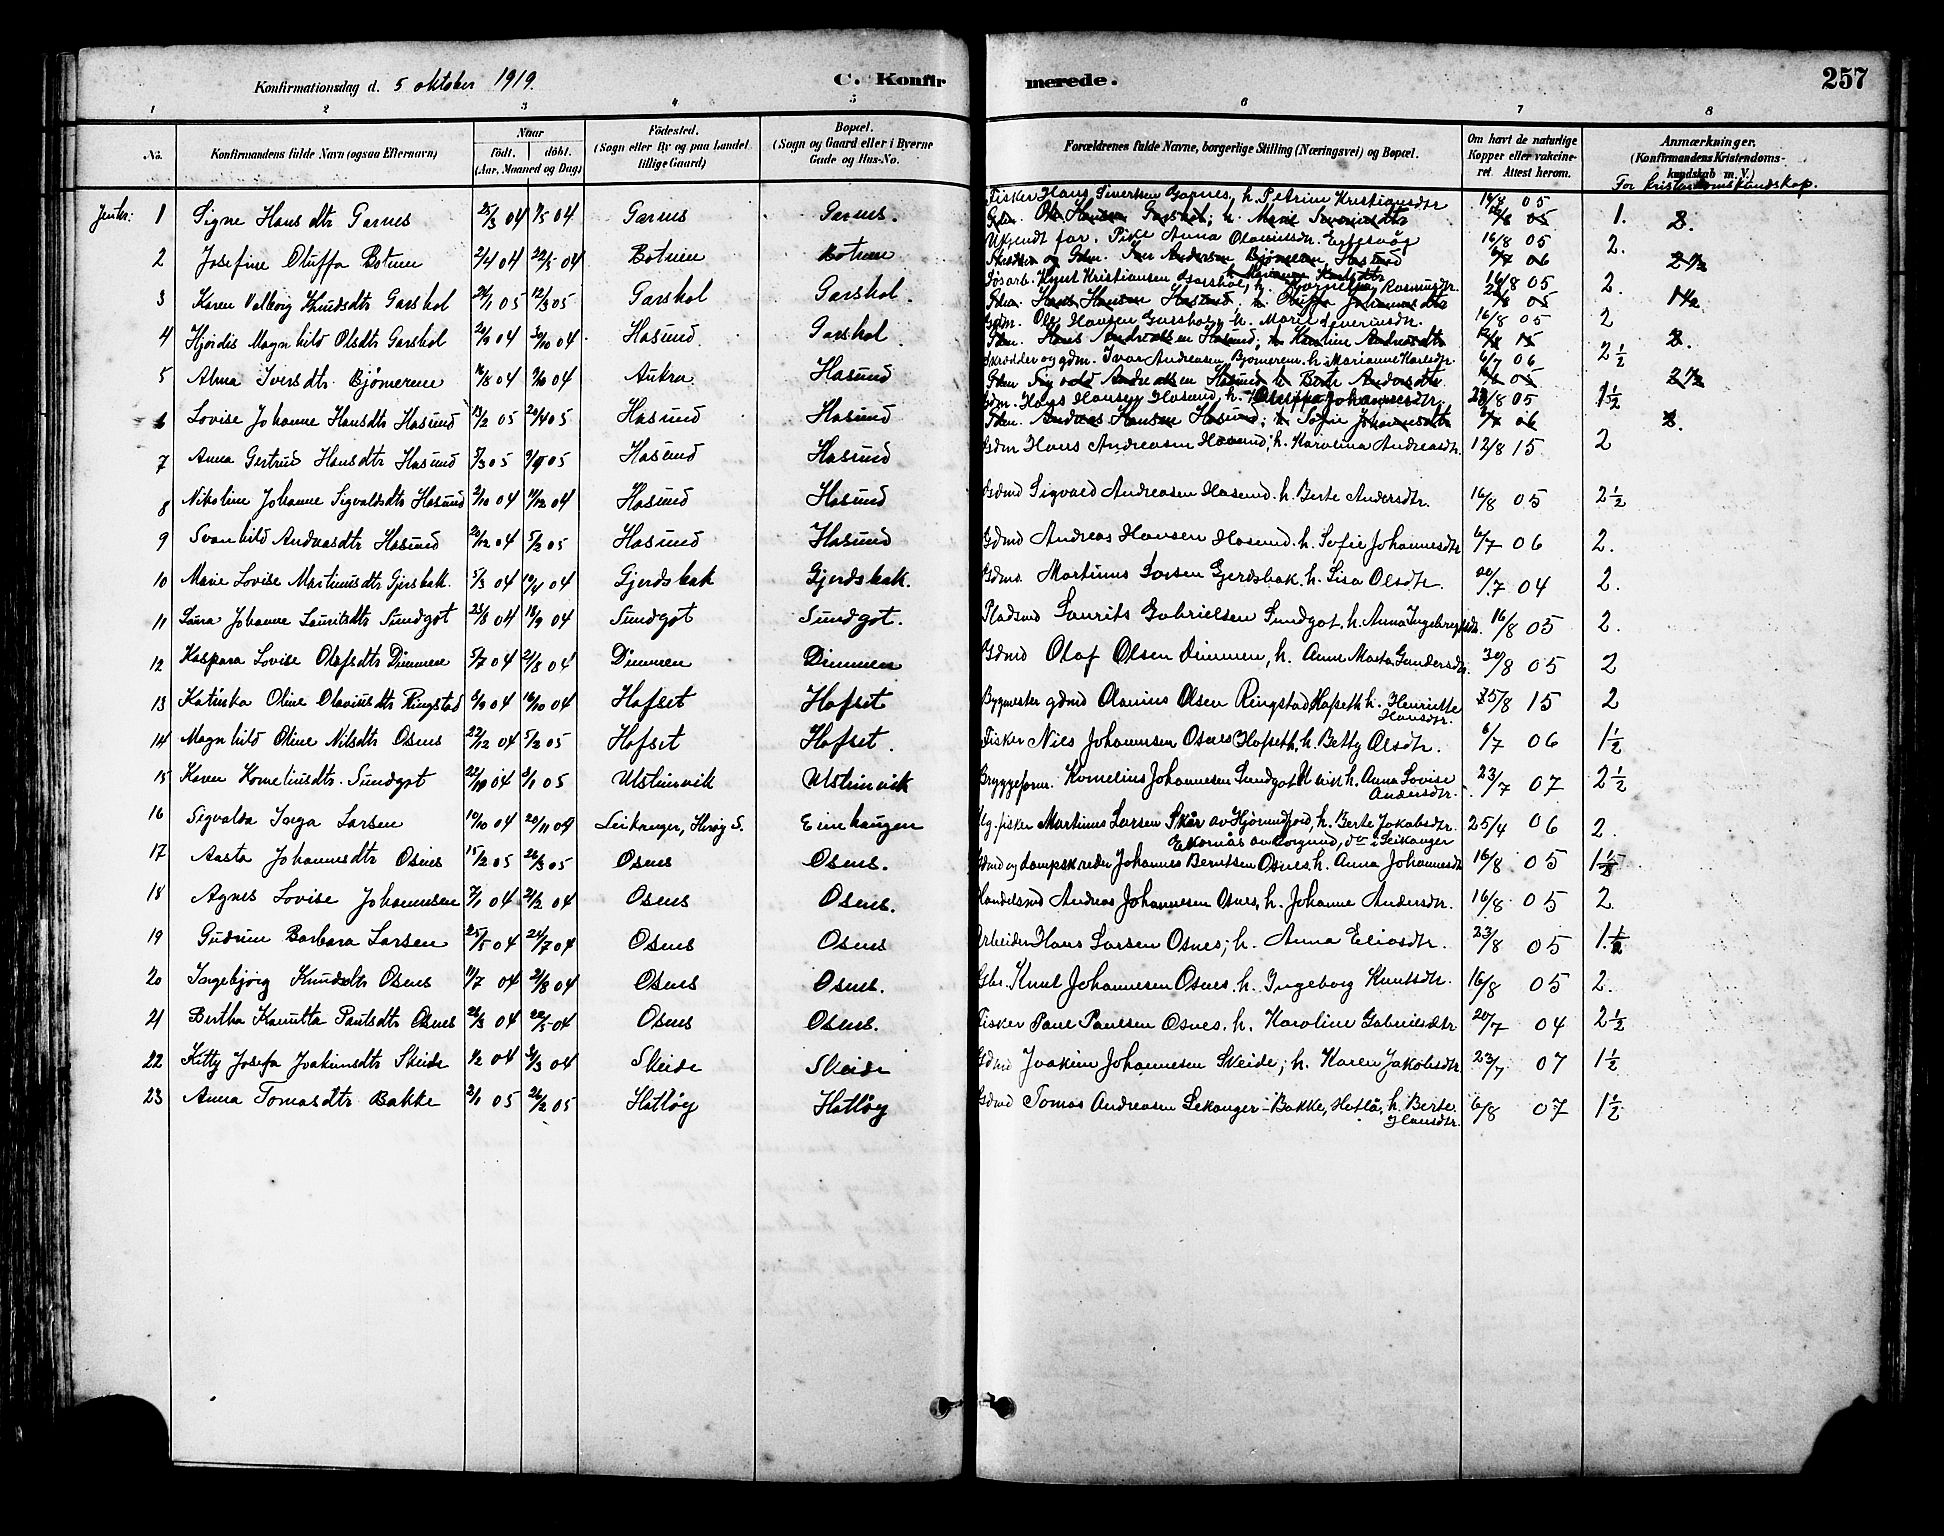 Konfirmationsdag d. 5 oktober 1919.
C. Konfirmerede.
257
1 2 3 4 5 6 7 8
No. Konfirmandens fulde Navn (ogsaa Efternavn) Naar födt. döbt. (Aar, Maaned og Dag) Födested. (Sogn eller By og paa Landet tillige Gaard) Bopæl. (Sogn og Gaard eller i Byerne Gade og Hus-No. Forældrenes fulde Navne, borgerlige Stilling (Næringsvei) og Bopæl. Om havt de naturlige Kopper eller vakcineret. Attest herom. Anmærkninger. (Konfirmandens Kristendomskundskab m. V.)
For kristendomskundskap.
Jenter: 1 Signe Hansdtr Garnes 25/3 04 04 Garnes Garnes. Fisker Hans Sivertsen Garnes, h. Petrine Kristiansdtr 16/8 05 1.
Gdm. Ole Hansen Garshol; h. Marie Severinsdtr 16/8 05 2.
2 Josefine Oluffa Botnen 2/4 04 22/5 04 Botnen Botnen Ukjendt far. Pike Anna 16/8 05 2.
Skrædder og Gdm. Ivar Andersen Bjømeren Hasund h. Marianne Karlsdtr 6/7 06 2½
3 Karen Valborg Knudsdtr Garshol 21/1 05 12/3 05 Garshol Garshol. Knut Kristiansen Garshol, h. Kornelia Rasmusdtr. 16/8 05 2.
Gdm. Hans Hansen Hasund. h. Oluffa Johannesdtr 05 1½
4 Hjördis Magnhild Olsdtr Garshol 20/9 04 30/10 04 Hasund Garshol. Gdm. Ole Hansen Garshol, h. Marie Severinsdtr. 16/8 05 2
Gdm. Hans Andreassen Hasund, h. Karoline Andreasdtr 12/8 15 2.
5 Alma Iversdtr Bjömerene 16/8 04 9/10 04 Aukra Hasund Skrædder og gdm. Ivar Andreasen Bjömeren h. Marianne Karlsdtr. 6/7 06 2½
Gdm Sigvald Andreassen Hasund h. Berte Andersdtr. 16/8 05 2½
6 Lovise Johanne Hansdtr Hasund 13/2 05 24/4 05 Hasund Hasund Gdm. Hans Hansen Hasund, h. Oluffa Johannesdtr. 05 1½
Gdm. Andreas Hansen Hasund; h. Sofie Johannesdtr 6/7 06 2.
7 Anna Gertrud Hansdtr Hasund 5/3 05 05 Hasund Hasund Gdm Hans Andreasen Hasund; h. Karolina Andreasdtr. 12/8 15 2
8 Nikoline Johanne Sigvaldsdtr Hasund 2/10 04 11/12 04 Hasund Hasund Gdmd Sigvald Andreasen Hasund. h. Berte Andersdtr. 16/8 05 2½
9 Svanhild Andreasdtr Hasund 20/12 04 5/2 05 Hasund Hasund Gdmd Andreas Hansen Hasund. h. Sofie Johannesdtr 6/7 06 2.
10 Marie Lovise Martinusdtr Gjersbak. 5/3 04 10/4 04 Gjerdsbak Gjerdsbak. Gdmd. Martinus Larsen Gjerdsbak h. Lisa Olsdtr. 20/7 04 2.
11 Laura Johanne Lauritsdtr Sundgot 23/8 04 18/9 04 Sundgot Sundgot. Pladsmd Laurits Gabrielsen Sundgot. h. Anna Ingebrigtsdtr. 16/8 05 2.
12 Kaspara Lovise Olafsdtr Dimmen 5/7 04 21/8 04 Dimmen Dimmen Gdmd Olaf Olsen Dimmen, h. Anne Marta Gundersdtr. 30/8 05 2
13 Katinka Oline Olaviusdtr Ringstad 6/9 04 16/10 04 Hofset Hofset Bygmester gdmd Olavius Olsen Ringstad Hofseth h. Henriette Hansdtr. 25/8 15 2
14 Magnhild Oline Nilsdtr Osnes 22/12 04 5/2 05 Hofset Hofset. Fisker Nils Johannesen Osnes Hofseth, h. Betty Olsdtr. 6/7 06 1½
15 Karen Korneliusdtr. Sundgot 22/10 04 8/1 05 Ulsteinvik Ulsteinvik Bryggeform. Kornelius Johannesen Sundgot h. Anna Lovise Andersdtr. 23/7 07 2½
16 Sigvalda Inga Larsen 10/10 04 20/11 04 Leikanger, Heröy S. Einehaugen Ug. fisker Martinus Larsen Skår av Hjörundfjord, h. Berte Jakobsdtr. Eikornås av Borgund, do i Leikanger 25/4 06 2.
17 Aasta Johannesdtr Osnes 15/2 05 26/3 05 Osnes Osnes. Gdmd og dampskreder Johannes Berntsen Osnes h. Anna Johannesdtr 16/8 05 1½
18 Agnes Lovise Johannesen 7/1 04 21/2 04 Osnes Osnes. Handelsmd Andreas Johannesen Osnes, h. Johanne Andersdtr. 16/8 05 2
19 Gudrun Barbara Larsen 25/5 04 24/7 04 Osnes Osnes Arbeider Hans Larsen Osnes; h. Anna Eliasdtr. 23/8 05 1½
20 Ingebjörg Knudsdtr Osnes 11/7 04 21/8 04 Osnes Osnes. Gbr. Knut Johannesen Osnes. h. Ingeborg Knutsdtr. 16/8 05 2.
21 Bertha Kamitta Paulsdtr Osnes 28/3 04 22/5 04 Osnes Osnes. Fisker Paul Paulsen Osnes. h. Karoline Gabrielsdtr 20/7 04 2½
22 Kitty Josefa Joakimsdtr Skeide 1/2 04 6/3 04 Skeide Skeide Gdmd Joakim Johannesen Skeide; h. Karen Jakobsdtr. 23/7 07 1½
23 Anna Tomasdtr Bakke 2/1 05 26/2 05 Hatlöy Hatlöy Gdmd Tomas Andreasen Lekanger-Bakke, Hatlö, h. Berte Hansdtr. 6/8 07 1½